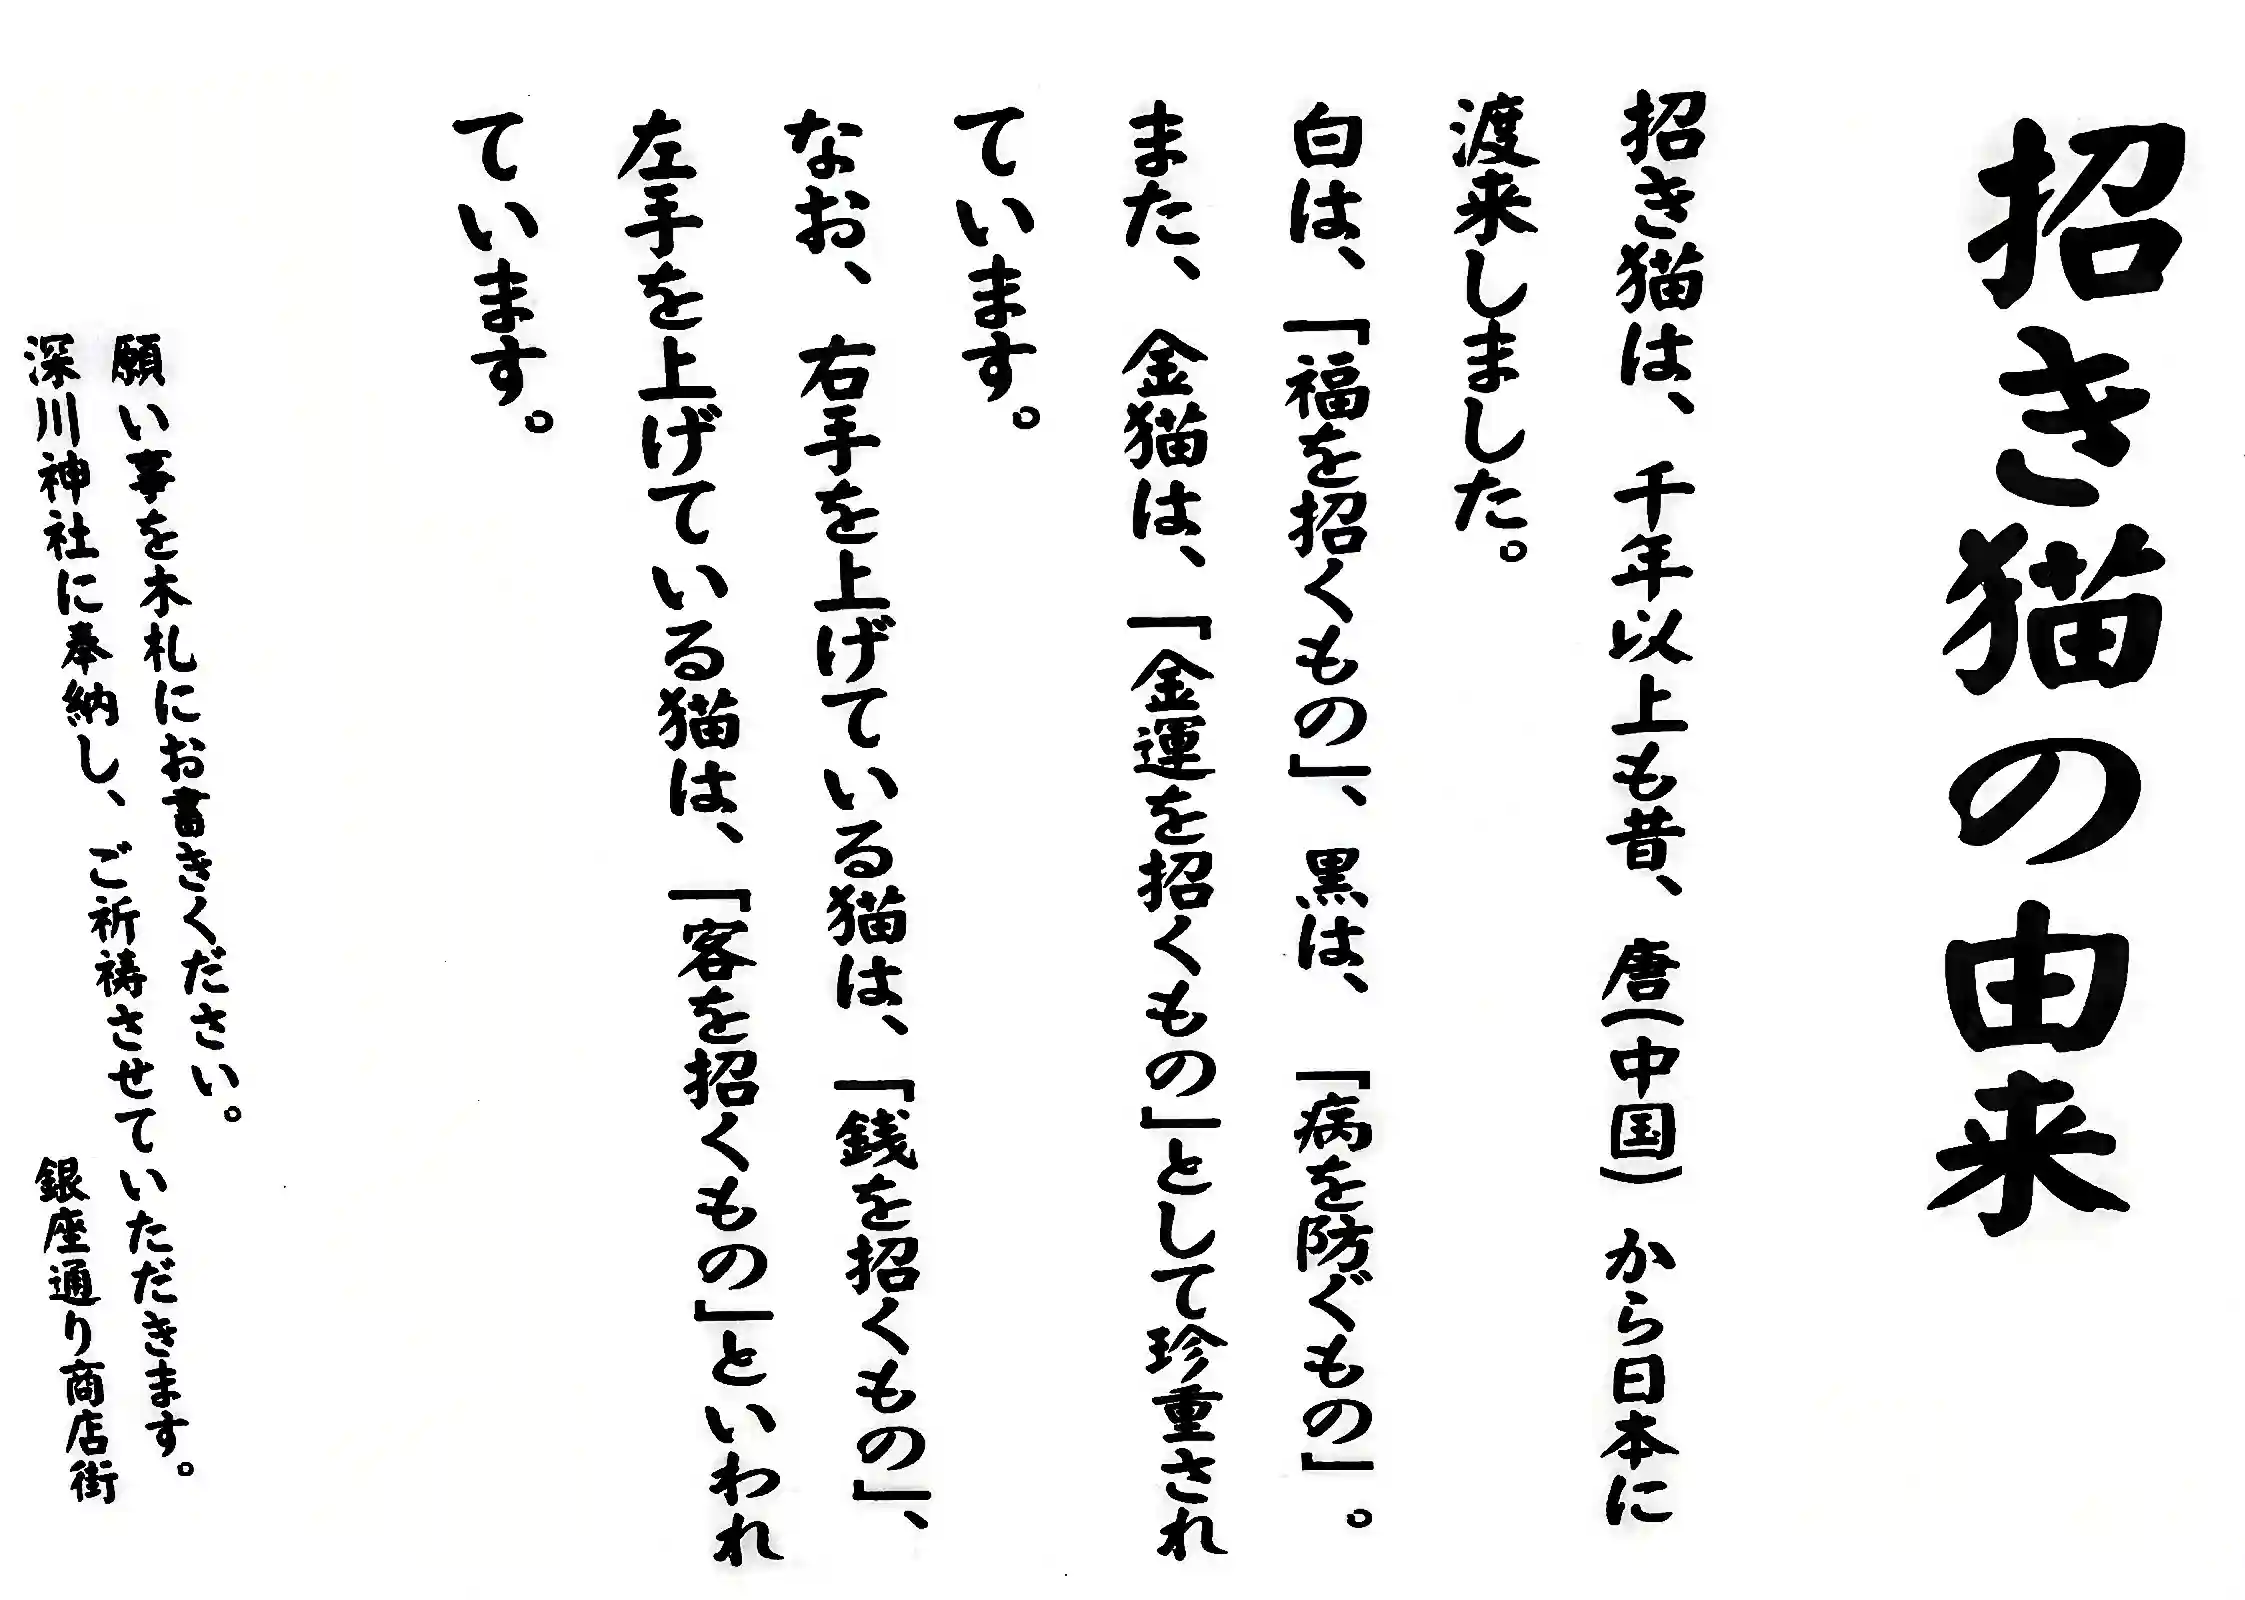 招き猫の由来
招き猫は、千年以上も昔、唐(中国)から日本に
渡来しました。
白は、「福を招くもの」、黒は、「病を防ぐもの」。
また、金猫は、「金運を招くもの」として珍重され
ています。
なお、右手を上げている猫は、「銭を招くもの」、
左手を上げている猫は、「客を招くもの」といわれ
ています。
願い事を木札にお書きください。
深川神社に奉納し、ご祈祷させていただきます。
銀座通り商店街